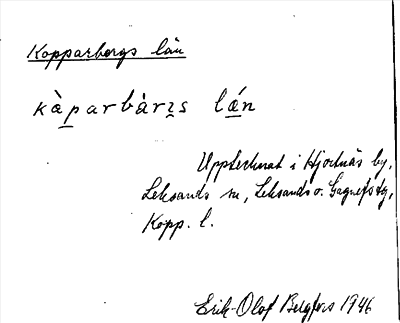 Kopparbergs län
kàparbàrıs lǽn
Upptecknat i Hjortnäs by,
Leksands sn, Leksands o. Gagnefs tg,
Kopp. l.
Erik-Olof Bergfors 1946